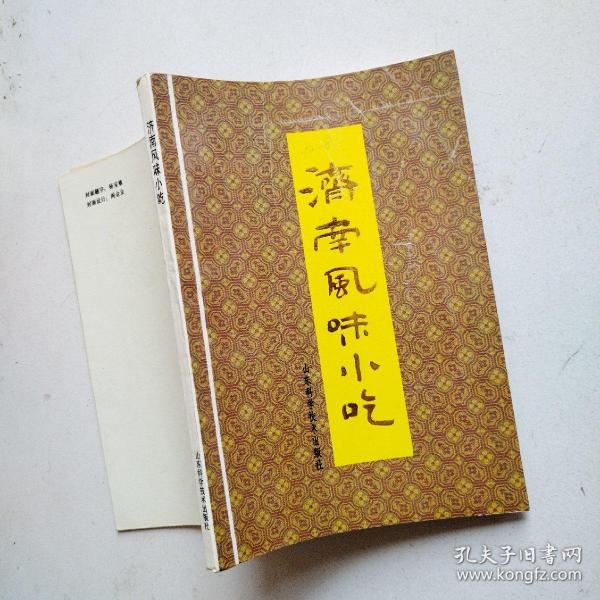 濟南風味小吃
山东科学技术出版社
济南风味小吃
山东科学技术出版社
封面题字：
封面设计：
孔夫子旧书网
www.kongfz.com